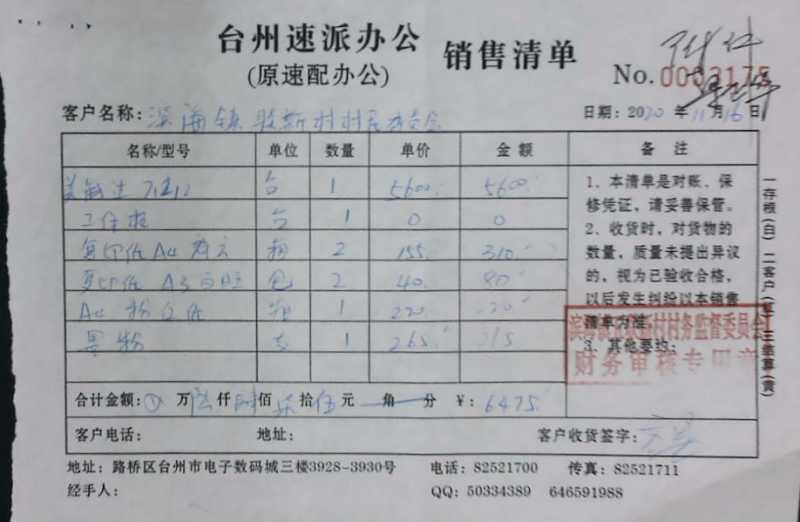 台州速派办公 销售清单
(原速配办公)
No. 0003175
客户名称: 滨海镇 新村村民委员会
日期: 2020 年 11 月 16 日
名称/型号 单位 数量 单价 金额 备注
台 1 5600 5600
工作柜 台 1 0 0
复印纸 A4 箱 2 155 310
复印纸 A3 包 2 40 80
A4 粉红纸 箱 1 220 220
墨粉 支 1 265
1、本清单是对账、保
修凭证，请妥善保管。
2、收货时，对货物的
数量，质量未提出异议
的，视为已验收合格，
以后发生纠纷以本销售
清单为准。
3、其他要约：
村村务监督委员会
财务审核专用章
合计金额: 万 陆 仟 肆 佰 柒 拾 伍 元 角 分 ¥: 6475
客户电话: 地址: 客户收货签字:
地址: 路桥区台州市电子数码城三楼3928-3930号 电话: 82521700 传真: 82521711
经手人: QQ: 50334389 646591988
一存根(白) 二客户(红) 三结算(黄)